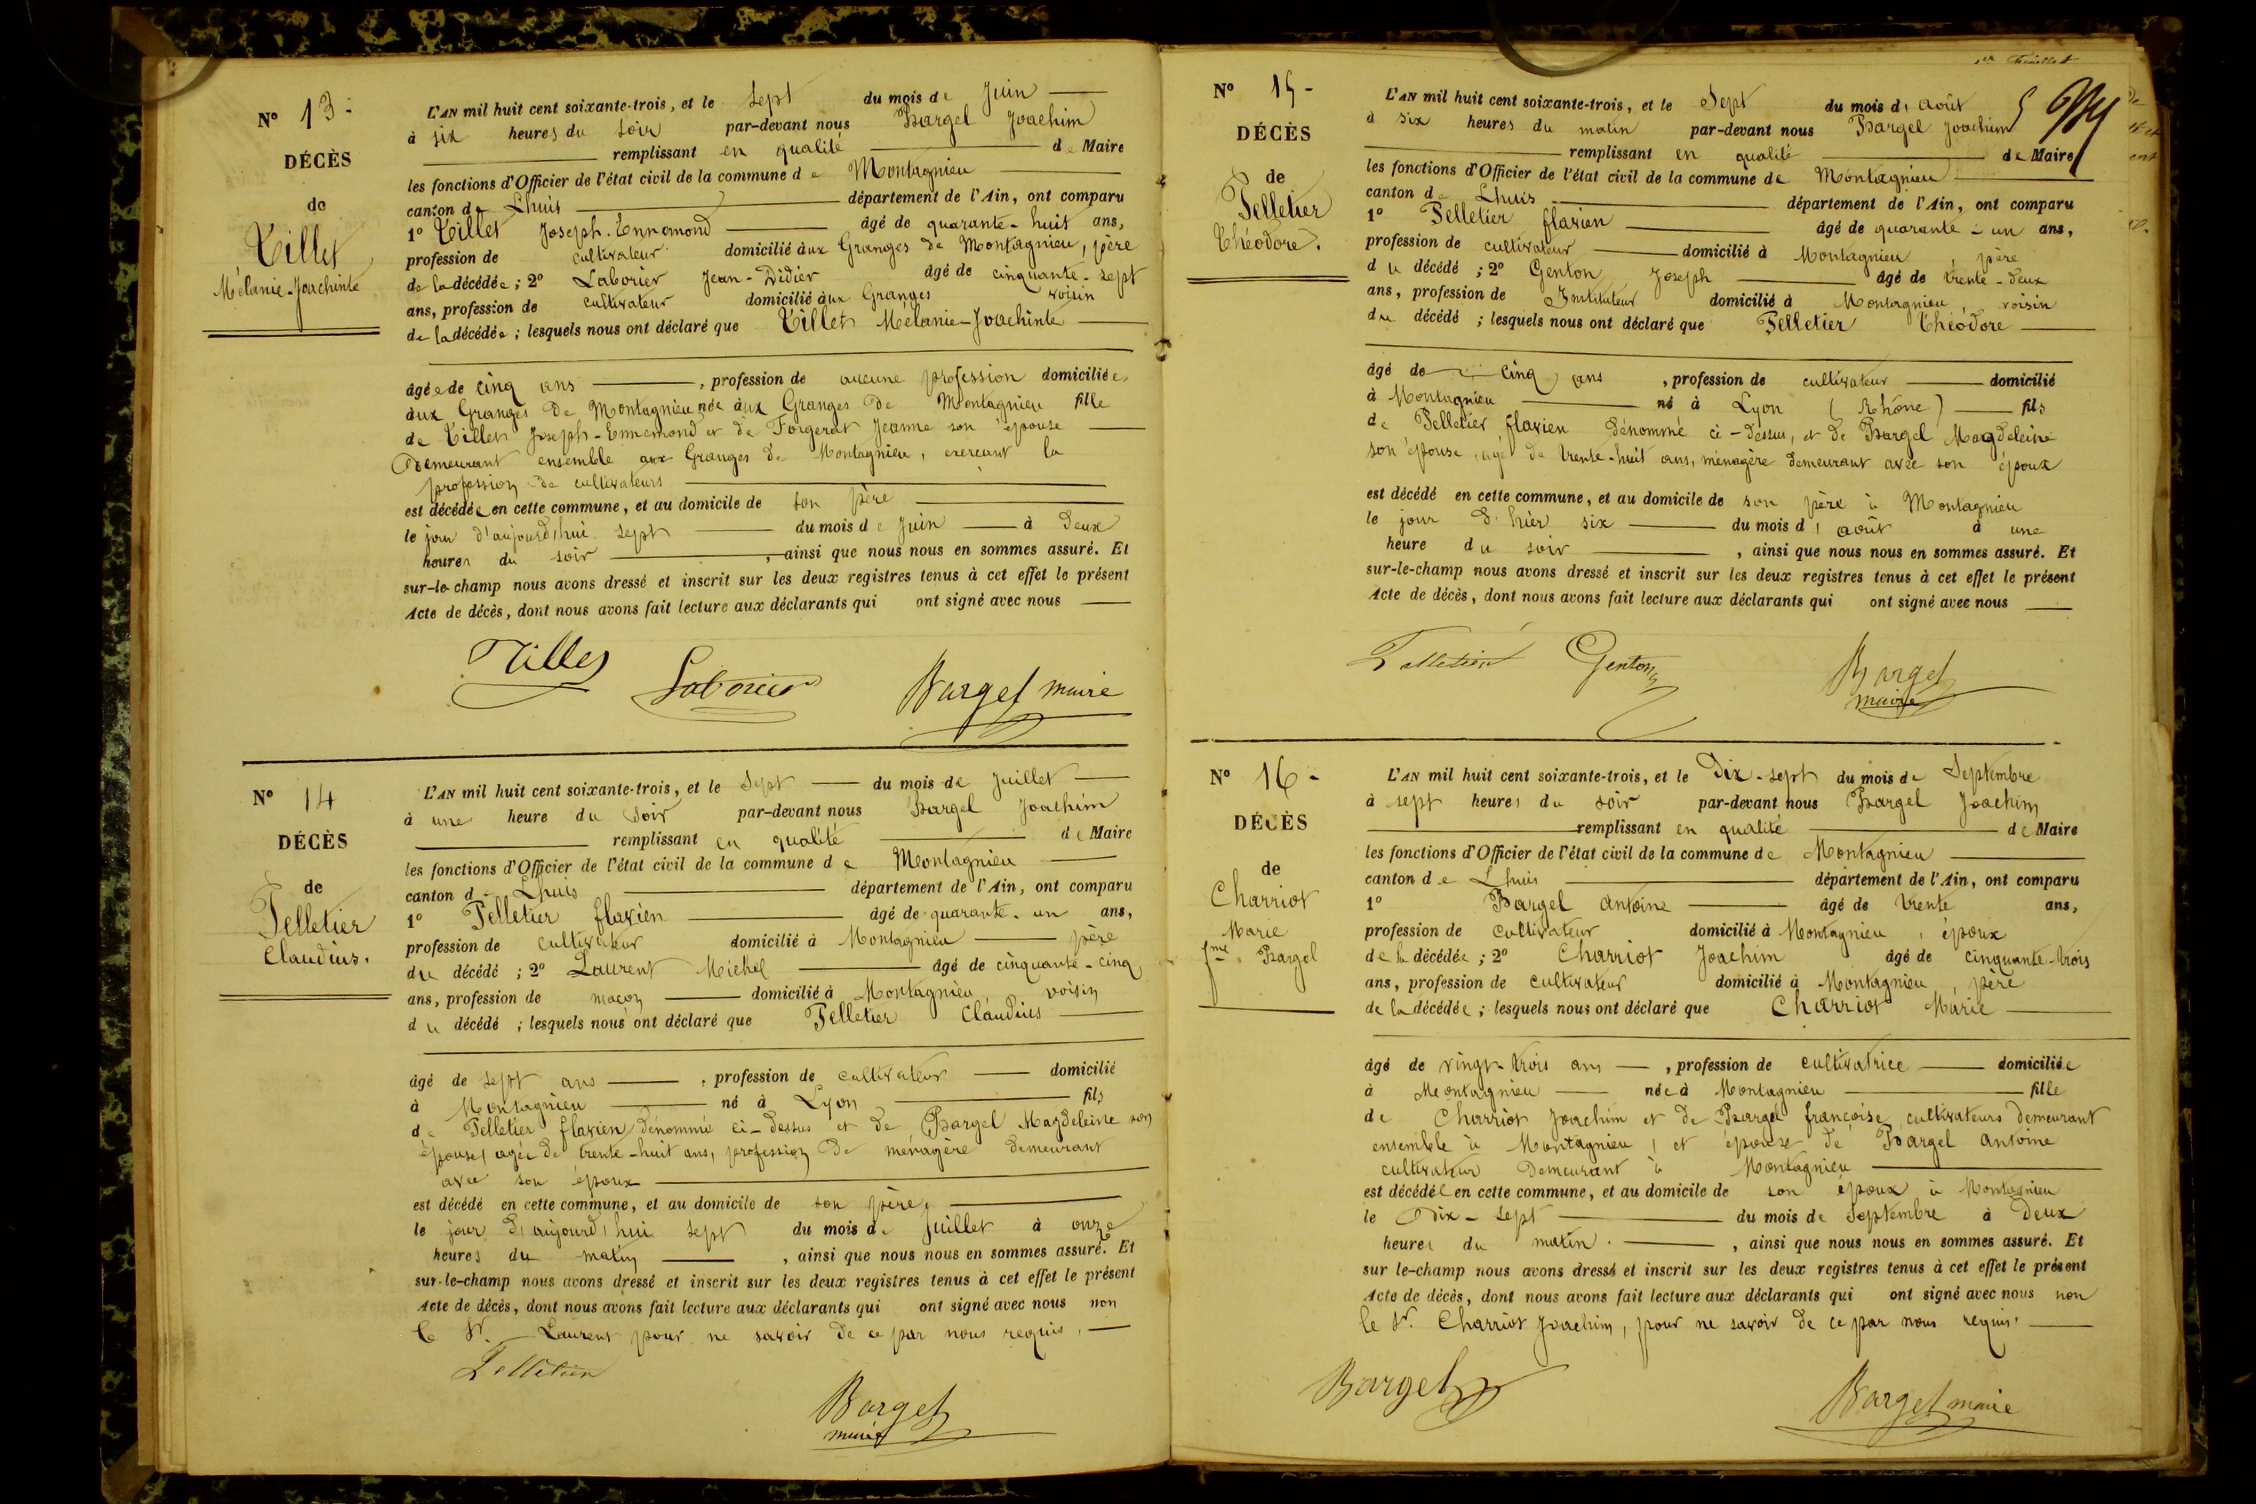 N° 13 -
DÉCÈS
de
Tillet
Mélanie-Joachinte
L'AN mil huit cent soixante-trois, et le sept du mois de Juin
à six heures du soir par-devant nous Bargel Joachim
remplissant en qualité de Maire
les fonctions d'Officier de l'état civil de la commune de Montagnieu
canton de Lhuis département de l'Ain, ont comparu
1° Tillet Joseph-Ennemond âgé de quarante-huit ans,
profession de cultivateur domicilié aux Granges de Montagnieu, père
de la décédée ; 2° Laborier Jean-Didier âgé de cinquante-sept
ans, profession de cultivateur domicilié aux Granges voisin
de la décédée ; lesquels nous ont déclaré que Tillet Mélanie-Joachinte
âgée de cinq ans , profession de aucune profession domiciliée
aux Granges de Montagnieu née aux Granges de Montagnieu fille
de Tillet Joseph-Ennemond et de Forgerat Jeanne son épouse
demeurant ensemble aux Granges de Montagnieu, exercant la
profession de cultivateurs
est décédée en cette commune, et au domicile de son père
le jour d'aujourd'hui sept du mois de Juin à deux
heures du soir , ainsi que nous nous en sommes assuré. Et
sur-le-champ nous avons dressé et inscrit sur les deux registres tenus à cet effet le présent
Acte de décès, dont nous avons fait lecture aux déclarants qui ont signé avec nous
Tillet Laborier Bargel maire
N° 14
DÉCÈS
de
Pelletier
Claudius.
L'AN mil huit cent soixante-trois, et le sept du mois de Juillet
à une heure du soir par-devant nous Bargel Joachim
remplissant en qualité de Maire
les fonctions d'Officier de l'état civil de la commune de Montagnieu
canton de Lhuis département de l'Ain, ont comparu
1° Pelletier flavien âgé de quarante-un ans,
profession de cultivateur domicilié à Montagnieu père
du décédé ; 2° Laurent Michel âgé de cinquante-cinq
ans, profession de maçon domicilié à Montagnieu, voisin
du décédé ; lesquels nous ont déclaré que Pelletier Claudius
âgé de sept ans , profession de cultivateur domicilié
à Montagnieu né à Lyon fils
de Pelletier flavien dénommé ci-dessus et de Bargel Magdeleine son
épouse, agée de trente-huit ans, profession de ménagère demeurant
avec son époux
est décédé en cette commune, et au domicile de son père,
le jour d'aujourd'hui sept du mois de Juillet à onze
heures du matin , ainsi que nous nous en sommes assuré. Et
sur-le-champ nous avons dressé et inscrit sur les deux registres tenus à cet effet le présent
Acte de décès, dont nous avons fait lecture aux déclarants qui ont signé avec nous non
le Sr. Laurent pour ne savoir de ce par nous requis.
Pelletier
Bargel
maire
N° 15 -
DÉCÈS
de
Pelletier
Théodore.
L'AN mil huit cent soixante-trois, et le Sept du mois d'août
à six heures du matin par-devant nous Bargel Joachim
remplissant en qualité de Maire
les fonctions d'Officier de l'état civil de la commune de Montagnieu
canton de Lhuis département de l'Ain, ont comparu
1° Pelletier flavien âgé de quarante-un ans,
profession de cultivateur domicilié à Montagnieu, père
du décédé ; 2° Genton Joseph âgé de trente-deux
ans, profession de Instituteur domicilié à Montagnieu, voisin
du décédé ; lesquels nous ont déclaré que Pelletier Théodore
âgé de cinq ans , profession de cultivateur domicilié
à Montagnieu né à Lyon (Rhône) fils
de Pelletier flavien dénommé ci-dessus, et de Bargel Magdeleine
son épouse, agé de trente-huit ans, ménagère demeurant avec son époux
est décédé en cette commune, et au domicile de son père à Montagnieu
le jour d'hier six du mois d'août à une
heure du soir , ainsi que nous nous en sommes assuré. Et
sur-le-champ nous avons dressé et inscrit sur les deux registres tenus à cet effet le présent
Acte de décès, dont nous avons fait lecture aux déclarants qui ont signé avec nous
Pelletier Genton Bargel
maire
N° 16 -
DÉCÈS
de
Charriot
Marie
fme. Bargel
L'AN mil huit cent soixante-trois, et le Dix-sept du mois de Septembre
à sept heures du soir par-devant nous Bargel Joachim
remplissant en qualité de Maire
les fonctions d'Officier de l'état civil de la commune de Montagnieu
canton de Lhuis département de l'Ain, ont comparu
1° Bargel antoine âgé de trente ans,
profession de cultivateur domicilié à Montagnieu, époux
de la décédée ; 2° Charriot Joachim âgé de cinquante-trois
ans, profession de cultivateur domicilié à Montagnieu, père
de la décédée ; lesquels nous ont déclaré que Charriot Marie
âgé de vingt-trois ans , profession de cultivatrice domiciliée
à Montagnieu née à Montagnieu fille
de Charriot Joachim et de Bargel françoise, cultivateurs demeurant
ensemble à Montagnieu, et épouse de Bargel antoine
cultivateur demeurant à Montagnieu
est décédée en cette commune, et au domicile de son époux à Montagnieu
le Dix-sept du mois de Septembre à deux
heures du matin. , ainsi que nous nous en sommes assuré. Et
sur le-champ nous avons dressé et inscrit sur les deux registres tenus à cet effet le présent
Acte de décès, dont nous avons fait lecture aux déclarants qui ont signé avec nous non
le Sr. Charriot Joachim, pour ne savoir de ce par nous requis.
Bargel Bargel maire